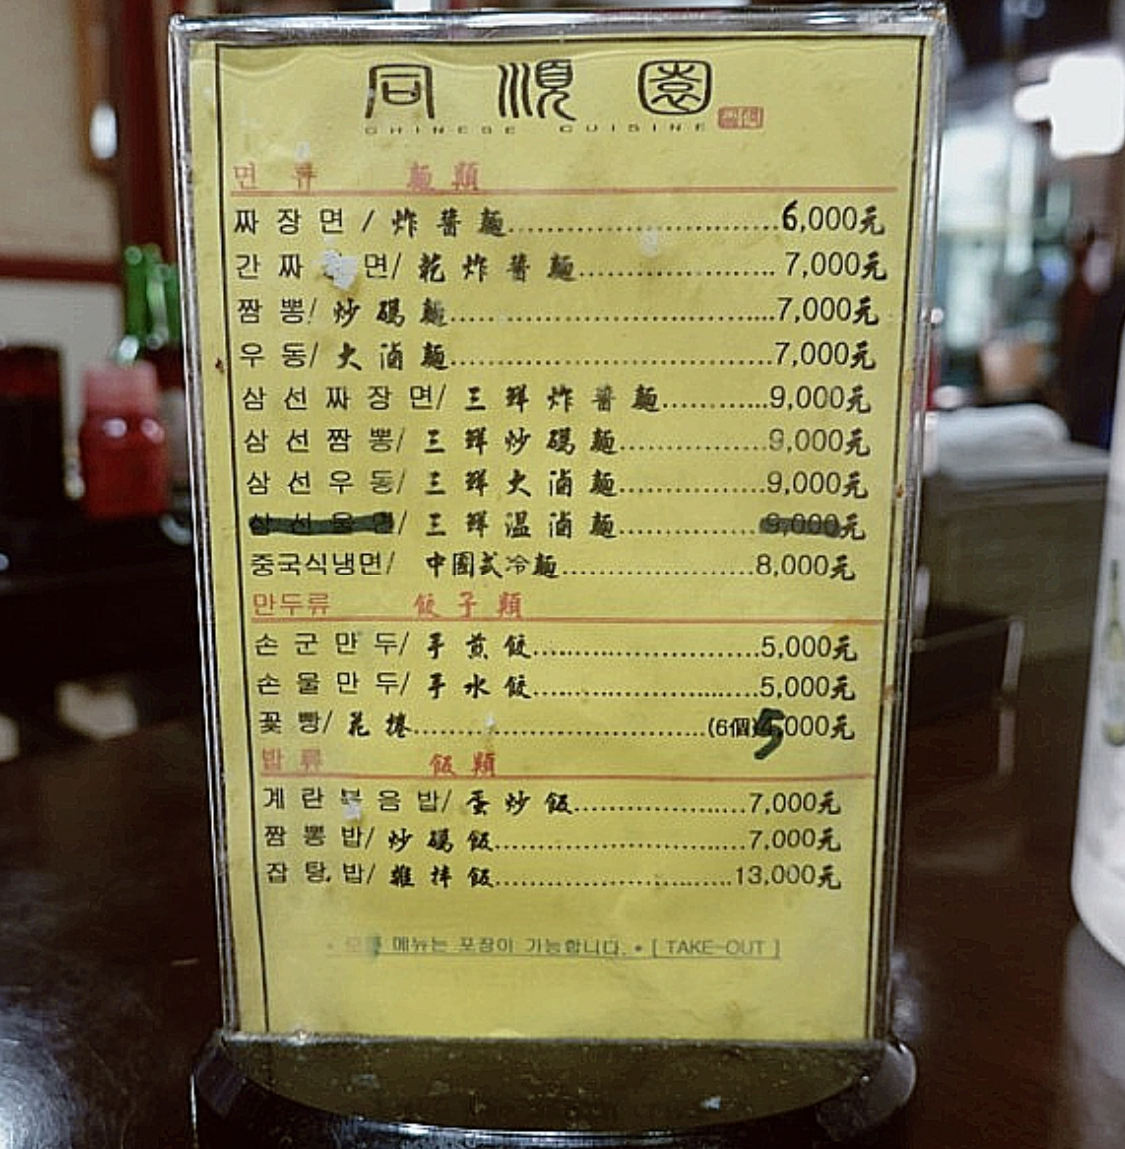 同順園
CHINESE CUISINE
면류 麵類
짜장면/炸醬麵 6,000元
간짜 면/乾炸醬麵 7,000元
짬뽕/炒碼麵 7,000元
우동/大滷麵 7,000元
삼선짜장면/三鮮炸醬麵 9,000元
삼선짬뽕/三鮮炒碼麵 9,000元
삼선우동/三鮮大滷麵 9,000元
삼선울면/三鮮温滷麵 9,000元
중국식냉면/ 中國式冷麵 8,000元
만두류 餃子類
손군만두/手煎餃 5,000元
손물만두/手水餃 5,000元
꽃빵/花捲 (6個)5,000元
밥류 飯類
계란볶음밥/蛋炒飯 7,000元
짬뽕밥/炒碼飯 7,000元
잡탕밥/雜拌飯 13,000元
• 메뉴는 포장이 가능합니다. • [ TAKE-OUT ]